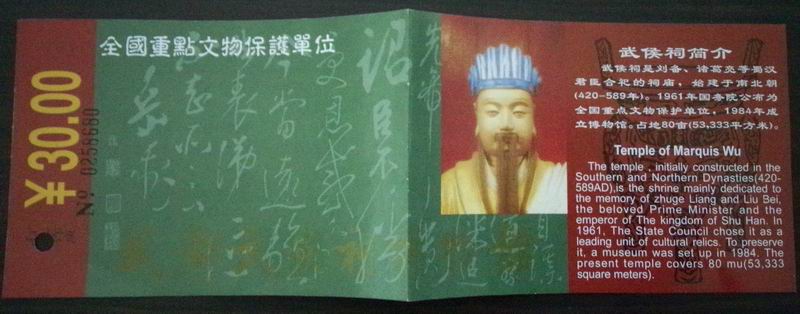 全國重點文物保護單位
¥30.00
№ 0258660
武侯祠简介
武侯祠是刘备、诸葛亮等蜀汉
君臣合祀的祠庙，始建于南北朝
(420-589年)。1961年国务院公布为
全国重点文物保护单位，1984年成
立博物馆。占地80亩(53,333平方米)。
Temple of Marquis Wu
The temple , initially constructed in the
Southern and Northern Dynasties(420-
589AD),is the shrine mainly dedicated to
the memory of zhuge Liang and Liu Bei,
the beloved Prime Minister and the
emperor of The kingdom of Shu Han. In
1961, The State Council chose it as a
leading unit of cultural relics. To preserve
it, a museum was set up in 1984. The
present temple covers 80 mu(53,333
square meters).